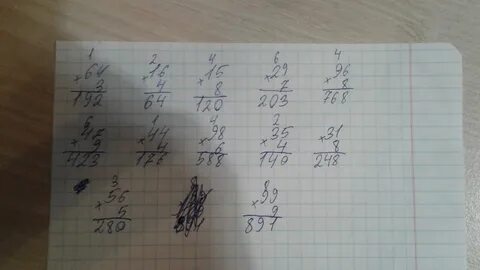 1 2 4 6 4
×64 ×16 ×15 ×29 ×96
3 4 8 7 8
192 64 120 203 768
6 1 4 2
×47 ×44 ×98 ×35 ×31
9 4 6 4 8
423 176 588 140 248
3 8
×56 ×99
5 9
280 891